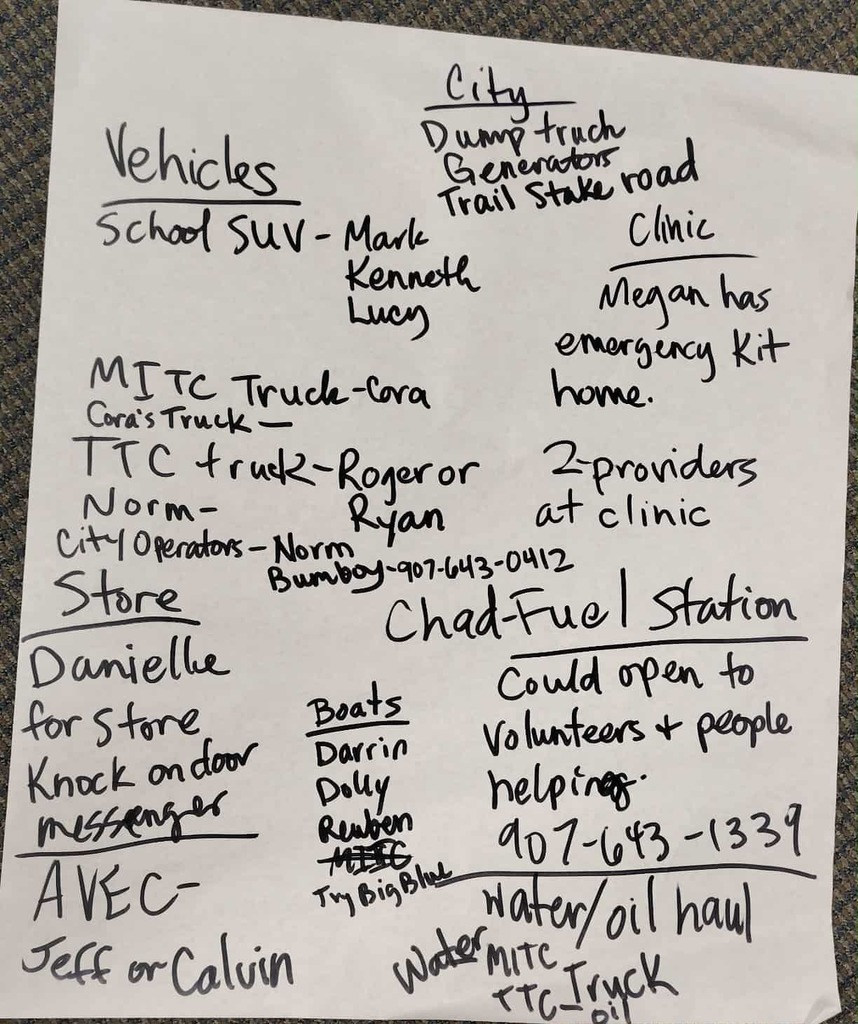 City
Dump truck
Generators
Trail Stake road
Vehicles
School SUV - Mark
Kenneth
Lucy
Clinic
Megan has
emergency Kit
home.
2-providers
at clinic
MITC Truck-Cora
Cora's Truck -
TTC truck-Roger or
Ryan
Norm-
City Operators - Norm
Bumboy-907-643-0412
Store
Danielle
for store
Knock on door
messenger
AVEC-
Jeff or Calvin
Boats
Darrin
Dolly
Reuben
Try Big Blue
Chad-Fuel Station
Could open to
volunteers + people
helping.
907-643-1339
Water/oil haul
Water MITC
TTC-Truck
oil